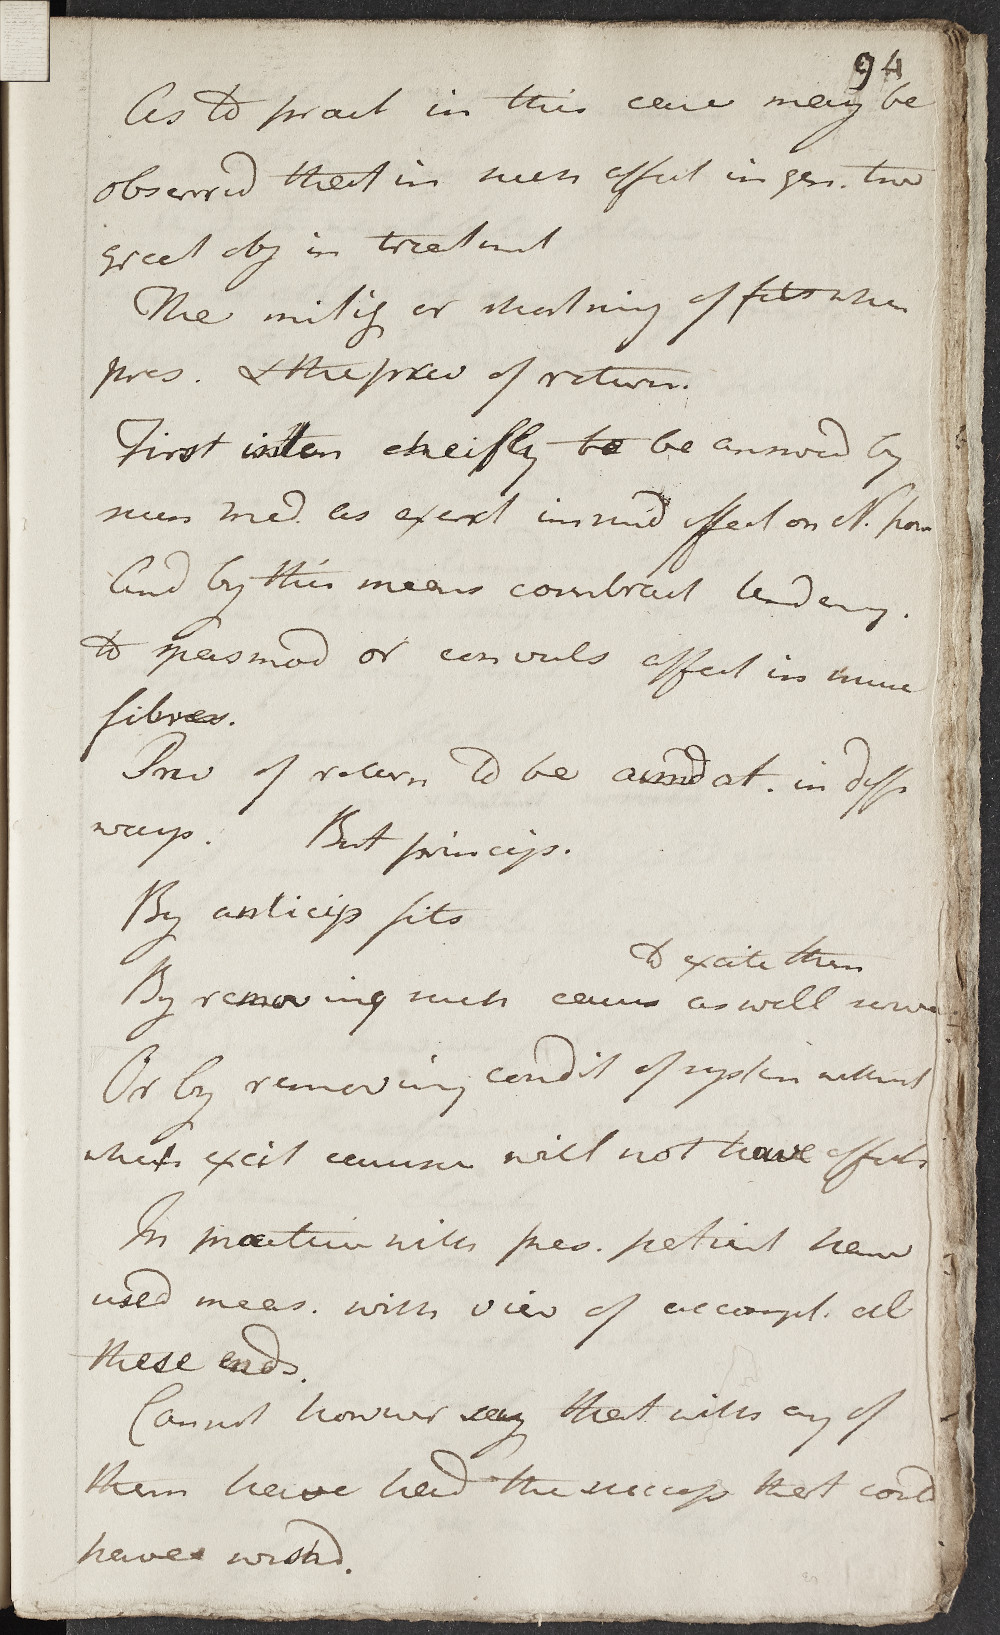 94
As to pract in this case may be
observed that in such affect in gen. two
great obj in treatment
The mitig or shortning of fits when
pres. & the prev of return.
First inten cheifly to be answd by
such med. as exert immed effect on N. pow
And by this means countract tendency.
to spasmod or convuls affect in musc
fibres.
Prev of return to be aimd at. in diff
ways. But princip.
By anticip fits
to excite them
By removing such causes as well serve
Or by removing condit of system without
which excit causes will not have effects
In practice with pres. patient have
used meas. with view of accompl. all
these ends.
Cannot however say that with any of
them have had the success that could
have wishd.